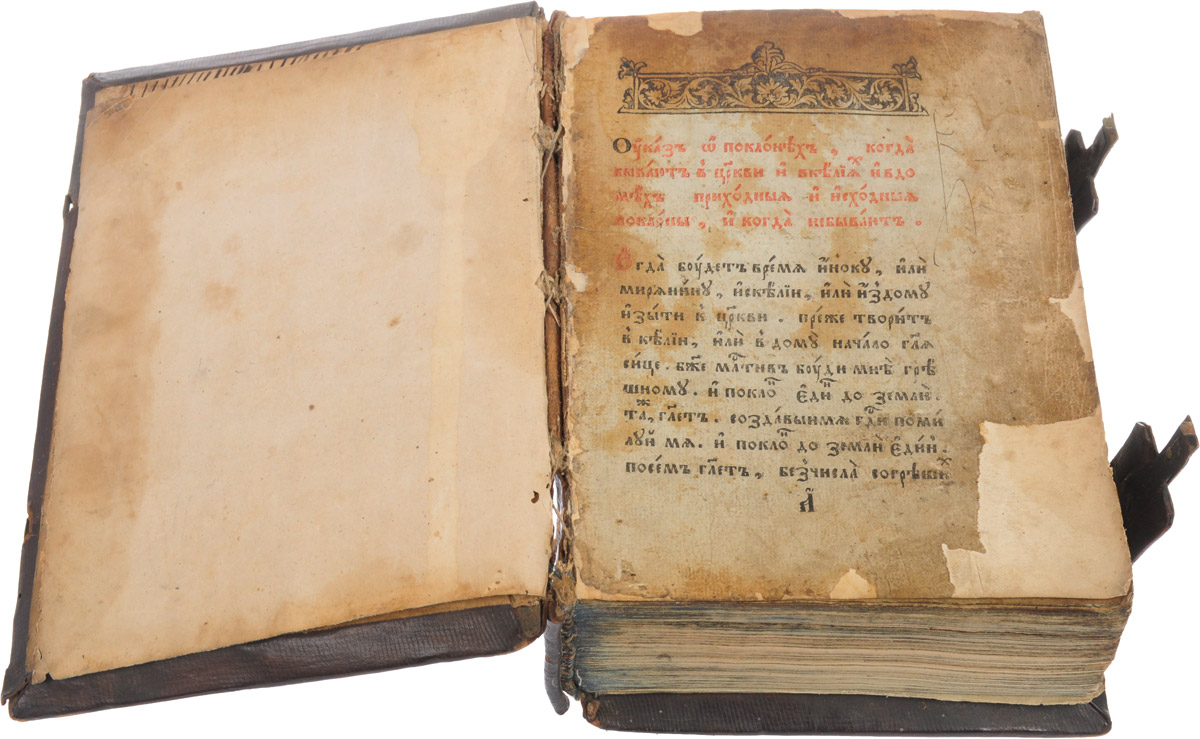 Оу҆ка́зъ ѡ҆ покло́нѣхъ , когда̀
быва́ютъ в҆ цр҃кви и҆ вкѣ́лїѧⷯ и҆ вдо
мѣ́хъ прихо́дныѧ и҆ и҆схо́дныѧ
покло́ны , и҆ когда̀ небыва́ютъ .
Є҆гда̀ боу́детъ вре́мѧ и҆́ноку , и҆лѝ
мирѧни́ну , и҆скѣ́лїи , и҆лѝ и҆з̾дому
и҆зы́ти к҆ цр҃кви . пре́же твори́тъ
в҆ кѣ́лїи , и҆лѝ в҆ домꙋ̀ нача́ло гл҃ѧ
си́це . бж҃е млⷭ҇тивъ боу́ди мнѣ̀ грѣ́
шному . и҆ поклоⷩ҇ є҆ди́нъ до землѝ .
таⷤ , гл҃етъ . созда́выимѧ гдⷭ҇и поми
луй мѧ . и҆ поклоⷩ҇ до землѝ є҆ди́нъ .
посе́мъ гл҃етъ , без̾числа̀ согрѣши́ⷯ
а҃і